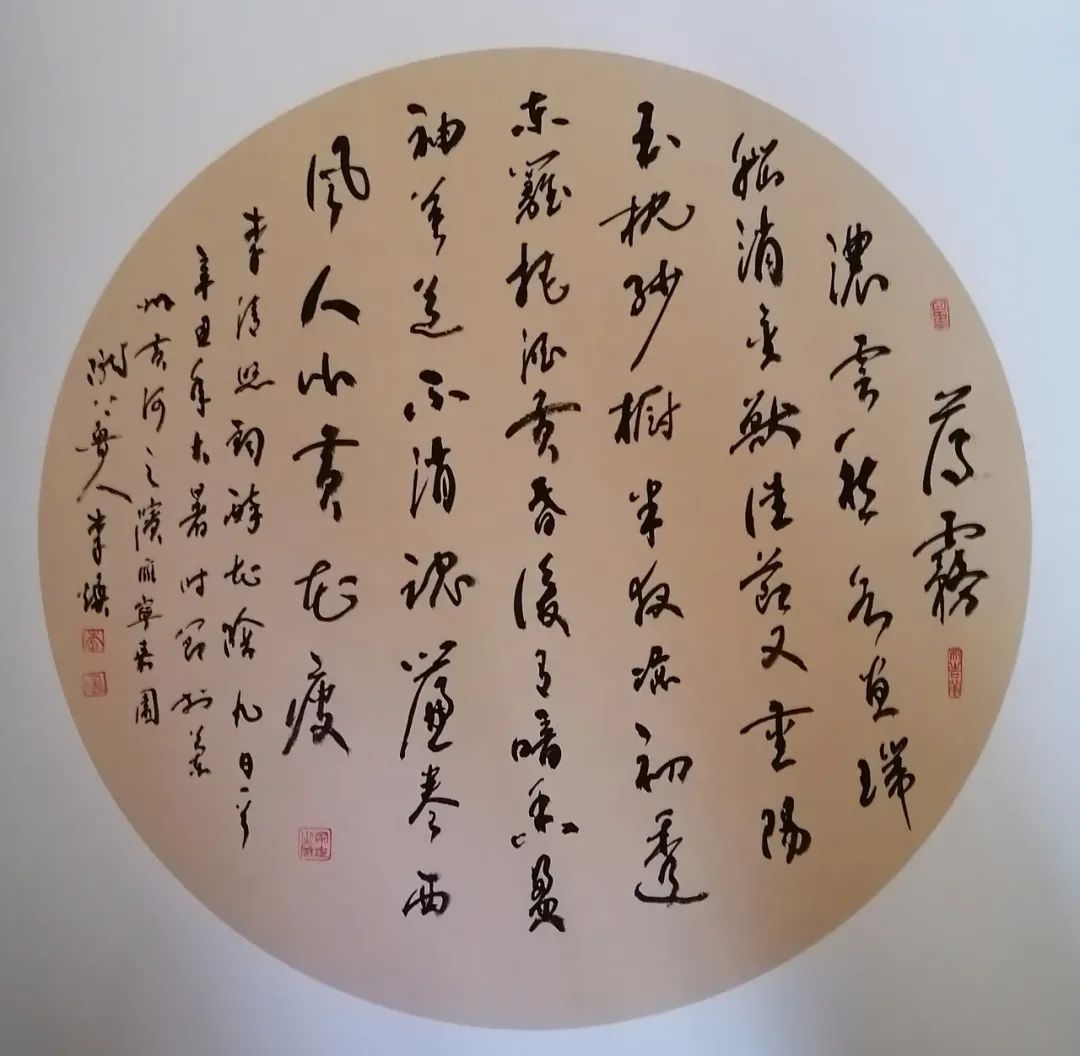 薄霧
濃雲愁永昼瑞
腦消金獸佳節又重陽
玉枕紗櫥半夜涼初透
東籬把酒黃昏後有暗香盈
袖莫道不消魂簾卷西
風人小黃花瘦
李清照詞醉花陰九日一首
辛丑年大暑時節於蘭
州黃河之濱雁
隴上魯人李